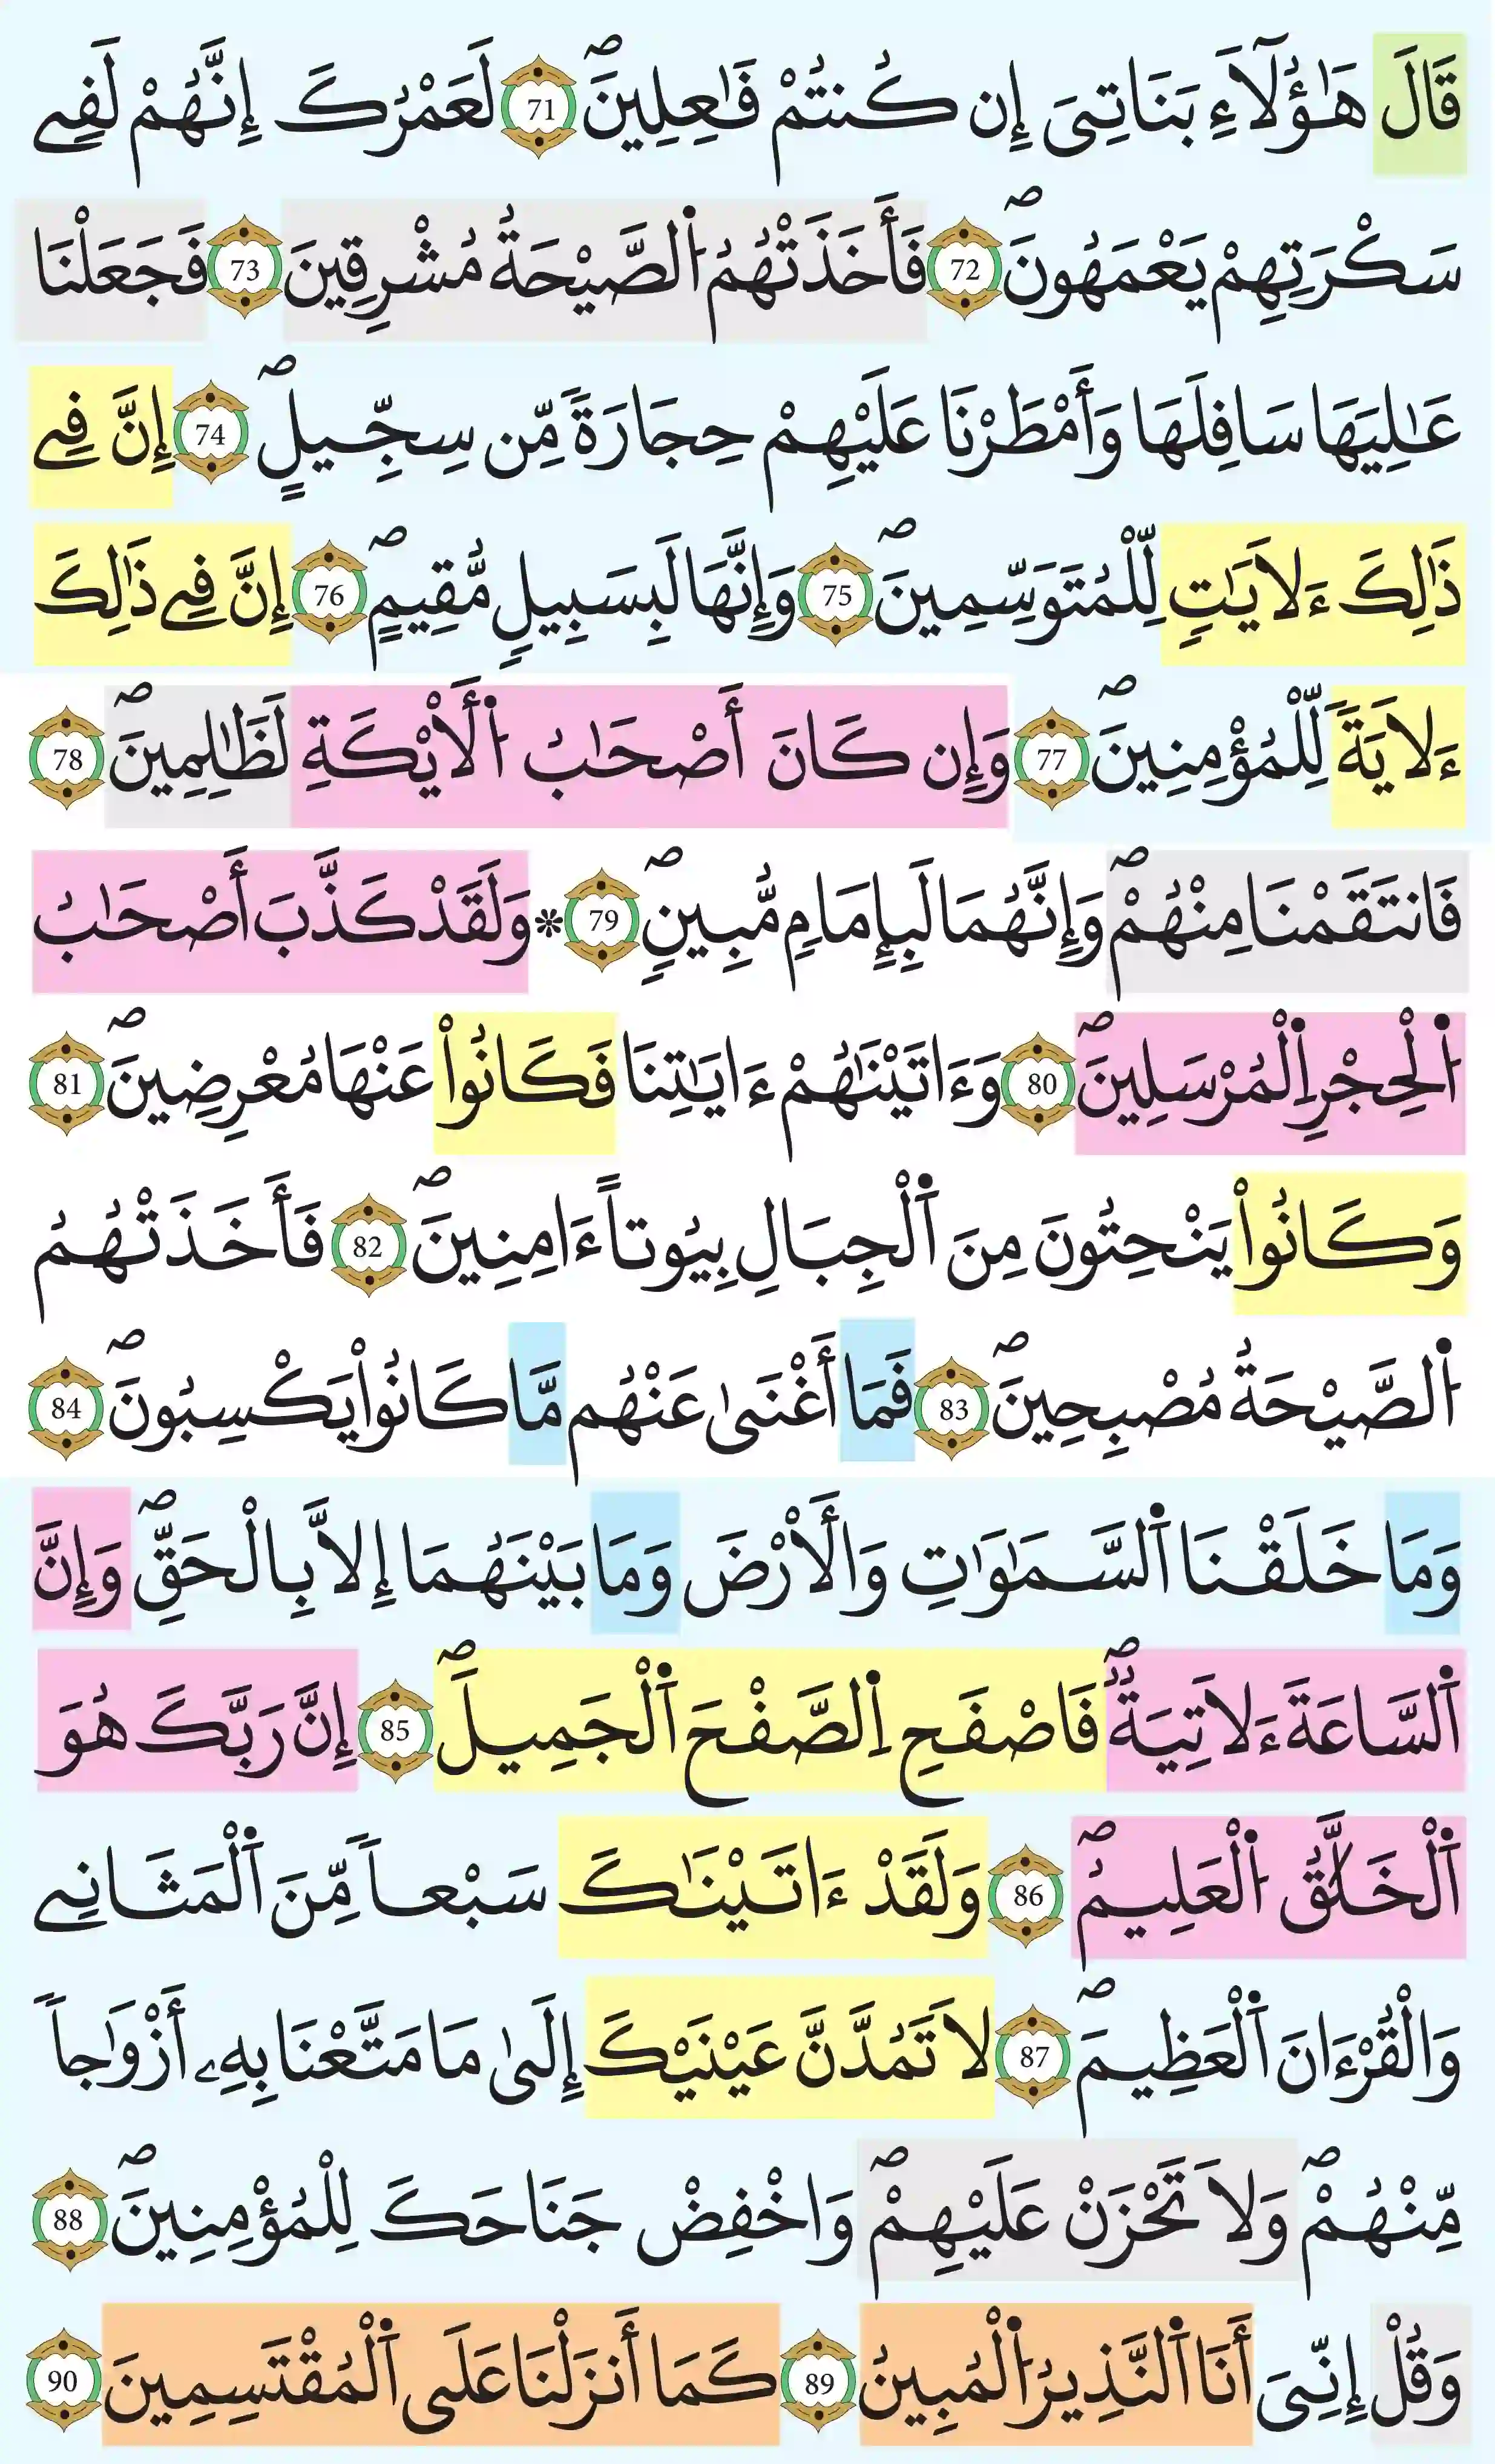 قَالَ هَٰؤُلَآءِ بَنَاتِىَ إِن كُنتُمْ فَٰعِلِينَۖ 71 لَعَمْرُكَ إِنَّهُمْ لَفِے
سَكْرَتِهِمْ يَعْمَهُونَۖ 72 فَأَخَذَتْهُمُ اُ۬لصَّيْحَةُ مُشْرِقِينَ 73 فَجَعَلْنَا
عَٰلِيَهَا سَافِلَهَا وَأَمْطَرْنَا عَلَيْهِمْ حِجَارَةٗ مِّن سِجِّيلٍۖ 74 إِنَّ فِے
ذَٰلِكَ ءَلَايَٰتٖ لِّلْمُتَوَسِّمِينَۖ 75 وَإِنَّهَا لَبِسَبِيلٖ مُّقِيمٍۖ 76 إِنَّ فِے ذَٰلِكَ
ءَلَايَةٗ لِّلْمُؤْمِنِينَۖ 77 وَإِن كَانَ أَصْحَٰبُ اُ۬لْأَيْكَةِ لَظَٰلِمِينَۖ 78
فَانتَقَمْنَا مِنْهُمْۖ وَإِنَّهُمَا لَبِإِمَامٖ مُّبِينٍۖ 79 * وَلَقَدْ كَذَّبَ أَصْحَٰبُ
اُ۬لْحِجْرِ اِ۬لْمُرْسَلِينَۖ 80 وَءَاتَيْنَٰهُمْ ءَايَٰتِنَا فَكَانُواْ عَنْهَا مُعْرِضِينَۖ 81
وَكَانُواْ يَنْحِتُونَ مِنَ اَ۬لْجِبَالِ بِيُوتاً ءَامِنِينَۖ 82 فَأَخَذَتْهُمُ
اُ۬لصَّيْحَةُ مُصْبِحِينَۖ 83 فَمَا أَغْنَىٰ عَنْهُم مَّا كَانُواْ يَكْسِبُونَۖ 84
وَمَا خَلَقْنَا اَ۬لسَّمَٰوَٰتِ وَالْأَرْضَ وَمَا بَيْنَهُمَا إِلَّا بِالْحَقِّۖ وَإِنَّ
اَ۬لسَّاعَةَ ءَلَاتِيَةٞۖ فَاصْفَحِ اِ۬لصَّفْحَ اَ۬لْجَمِيلَۖ 85 إِنَّ رَبَّكَ هُوَ
اَ۬لْخَلَّٰقُ اُ۬لْعَلِيمُۖ 86 وَلَقَدْ ءَاتَيْنَٰكَ سَبْعاٗ مِّنَ اَ۬لْمَثَانِے
وَالْقُرْءَانَ اَ۬لْعَظِيمَۖ 87 لَا تَمُدَّنَّ عَيْنَيْكَ إِلَىٰ مَا مَتَّعْنَا بِهِۦ أَزْوَٰجاٗ
مِّنْهُمْۖ وَلَا تَحْزَنْ عَلَيْهِمْۖ وَاخْفِضْ جَنَاحَكَ لِلْمُؤْمِنِينَۖ 88
وَقُلْ إِنِّىَ أَنَا اَ۬لنَّذِيرُ اُ۬لْمُبِينُ 89 كَمَا أَنزَلْنَا عَلَى اَ۬لْمُقْتَسِمِينَ 90